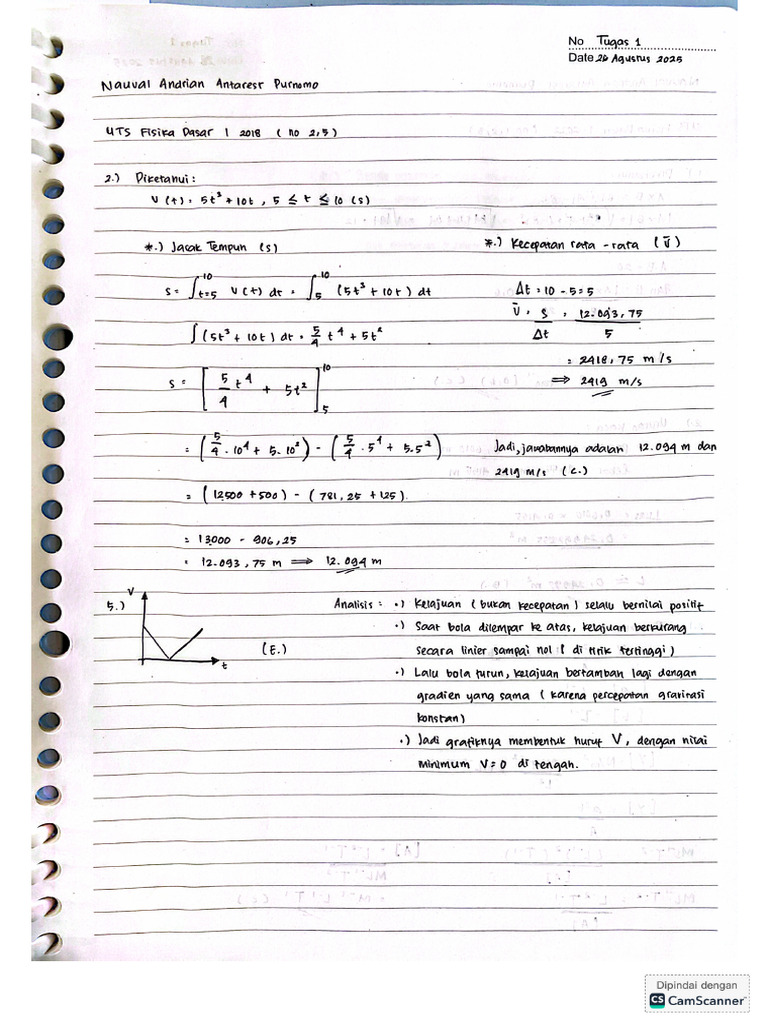 No Tugas 1
Date 26 Agustus 2025
Nauval Andrian Antarest Purnomo
UTS Fisika Dasar 1 2018 ( no 2,5 )
2.) Diketahui :
V(t) = 5t³ + 10t , 5 ≤ t ≤ 10 (s)
*.) Jarak Tempuh (s)
s = ∫_{t=5}^{10} V(t) dt = ∫_{5}^{10} (5t³ + 10t) dt
∫ (5t³ + 10t) dt = 5/4 t⁴ + 5t²
s = [ 5/4 t⁴ + 5t² ]_{5}^{10}
= ( 5/4 . 10⁴ + 5. 10² ) - ( 5/4 . 5⁴ + 5.5² )
= ( 12500 + 500 ) - ( 781,25 + 125 ).
= 13000 - 906,25
= 12.093,75 m ⟹ 12.094 m
*.) Kecepatan rata - rata ( v̄ )
Δt = 10 - 5 = 5
v̄ = s/Δt = 12.093,75/5
= 2418,75 m/s
⟹ 2419 m/s
Jadi, jawabannya adalah 12.094 m dan
2419 m/s (C.)
5.)
V
t
(E.)
Analisis : •) Kelajuan ( bukan kecepatan ) selalu bernilai positif
•) Saat bola dilempar ke atas, kelajuan berkurang
secara linier sampai nol ( di titik tertinggi )
•) Lalu bola turun, kelajuan bertambah lagi dengan
gradien yang sama ( karena percepatan gravitasi
konstan )
•) Jadi grafiknya membentuk huruf V, dengan nilai
minimum V = 0 di tengah.
Dipindai dengan
CS CamScanner